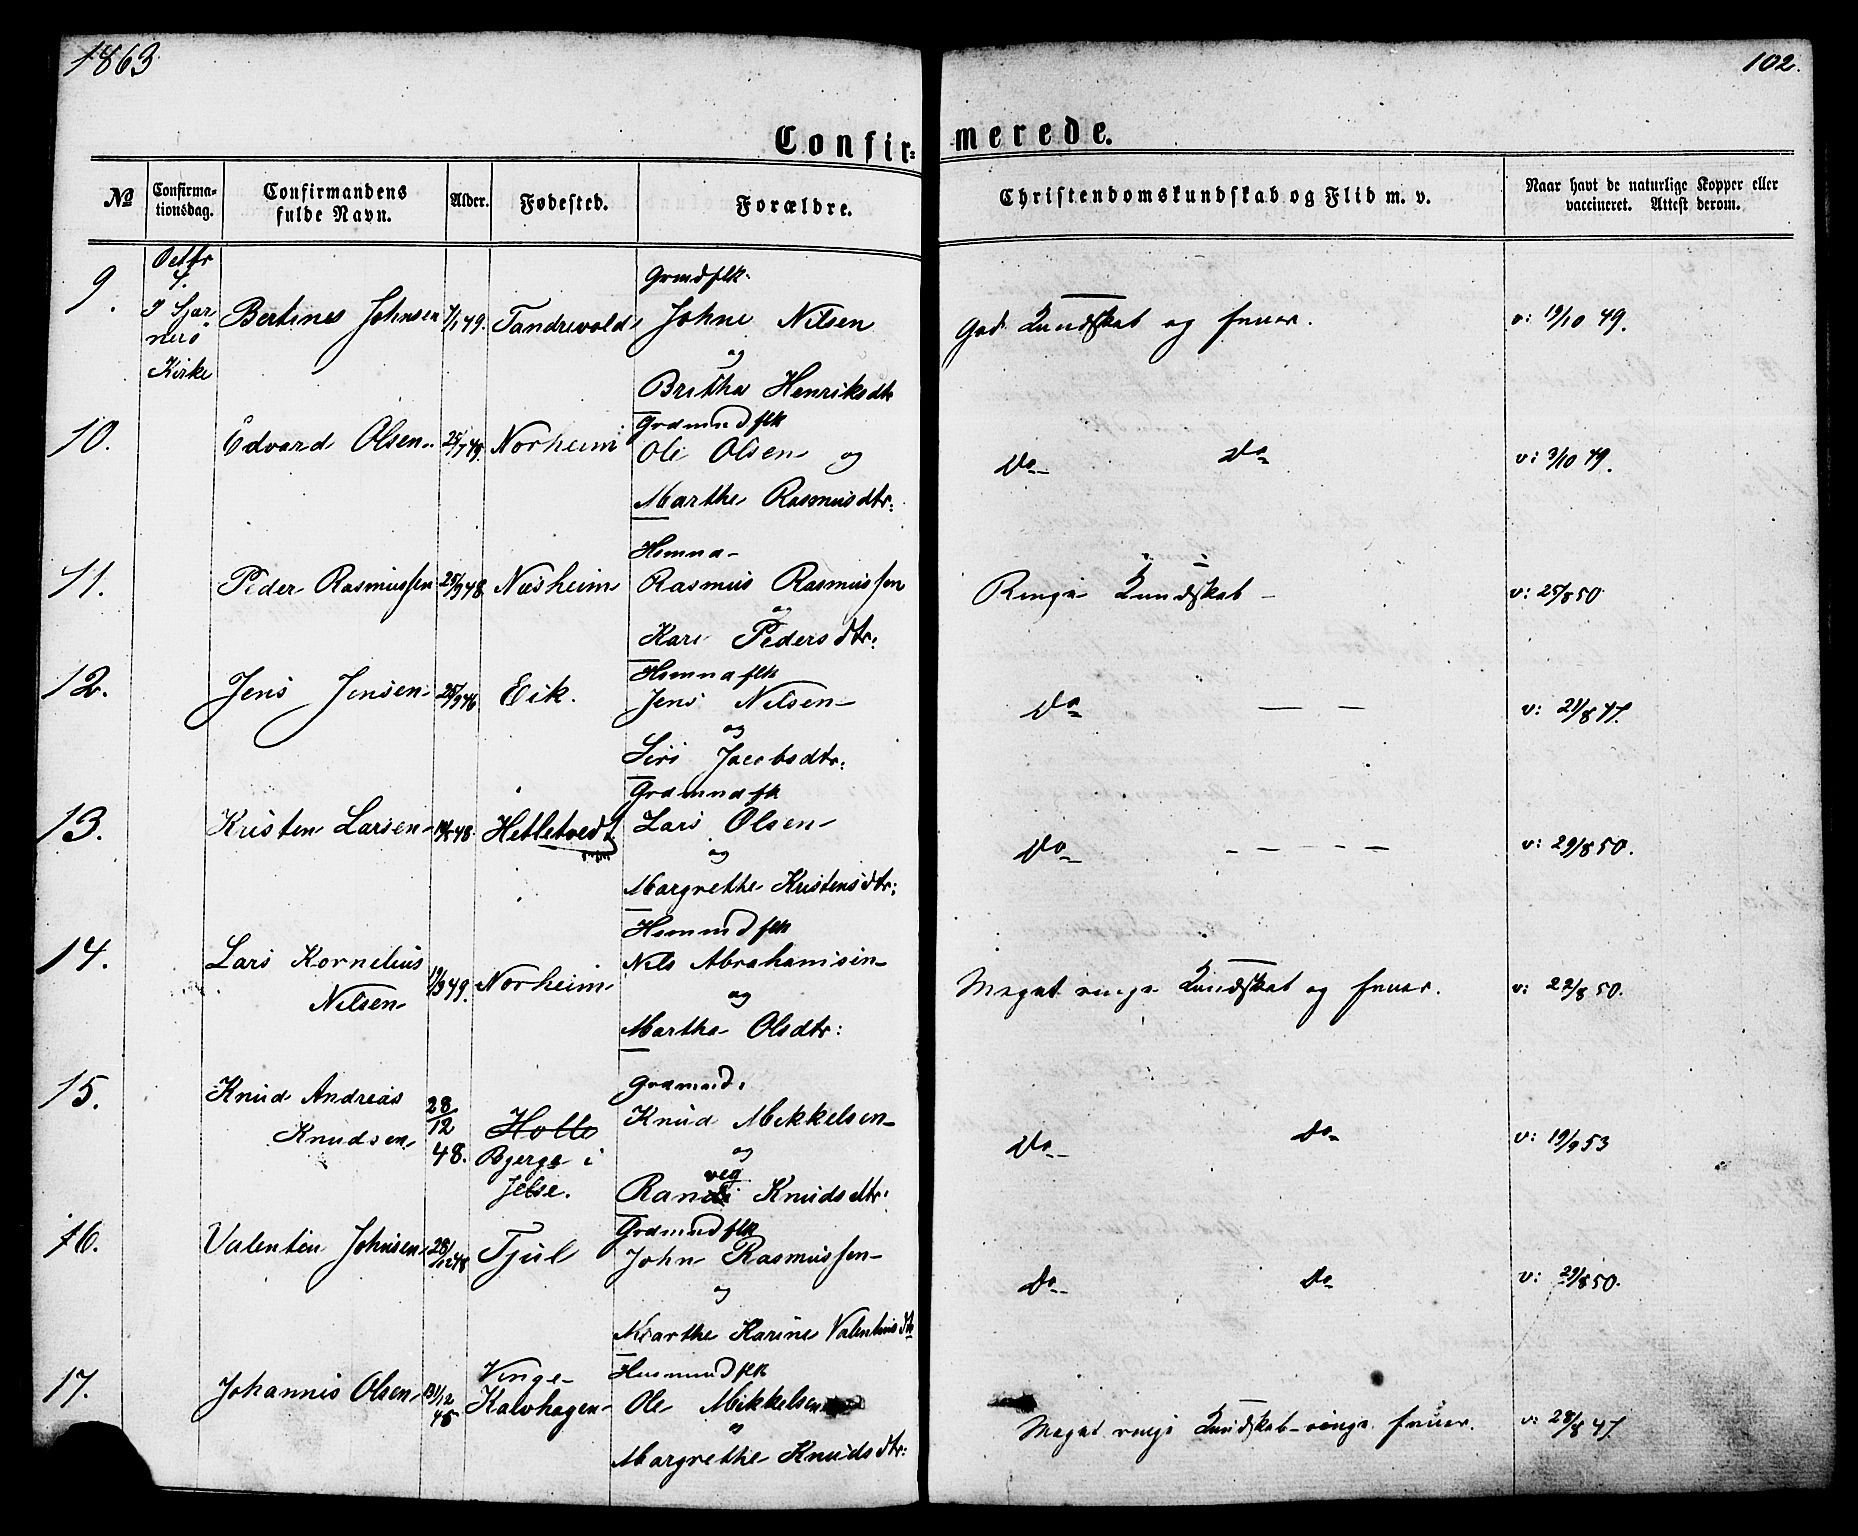 1863
102.
Confir= merede.
No
Confirma-
tionsdag.
Confirmandens
fulde Navn.
Alder.
Fødested.
Forældre.
Christendomskundskab og Flid m. v.
Naar havt de naturlige Kopper eller
vaccineret. Attest derom.
9.
Octbr
4.
I Sjær
nerö
Kirke
Bertines Johnsen
49.
Tandrevold
Johne Nilsen
og
Britha Henriksdtr
God Kundskab og
v: 19/10 49.
10.
Edvard Olsen
49.
Norheim
Grdmnd flk
Ole Olsen og
Marthe Rasmusdtr:
Do Do
v: 3/10 49.
11.
Peder Rasmussen
25/9 48
Næsheim
Rasmus Rasmussen
og
Kari Pedersdtr:
Ringe Kundskab
v: 25/8 50
12.
Jens Jensen
25/9 46
Eik.
Jens Nilsen
og
Siri Jacobsdtr:
Do — —
v: 21/8 47.
13.
Kristen Larsen
48
Hetletvedt
Lars Olsen
og
Margrethe Kristensdtr:
Do - - - - -
v: 29/8 50.
14.
Lars Kornelius
Nilsen
19/3 49.
Norheim
Nils Abrahamsen
og
Martha Olsdtr:
Meget ringe Kundskab og
v: 22/8 50.
15.
Knud Andreas
Knudsen
28/12
48.
Bjerge i
Jelse.
Grdmnd.
Knud Mikkelsen
og
Knudsdtr:
Do Do
v: 19/9 53
16.
Valentin Johnsen
48
Tjul
Grdmnd flk
John Rasmussen
og
Marthe Karine Valentinsdtr
Do Do
v: 29/8 50.
17.
Johannis Olsen
31/12
45
Vinge
Kalvhagen
Husmnd flk
Ole Mikkelsen
og
Margrethe Knudsdtr:
Meget ringe Kundskab ringe
v: 28/8 47